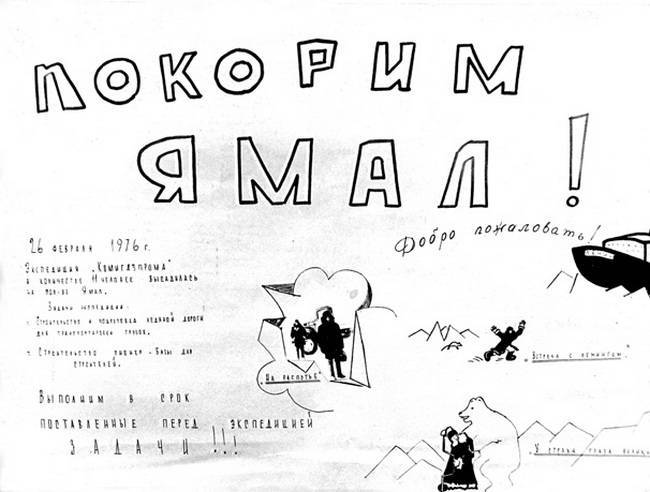 ПОКОРИМ
ЯМАЛ!
26 ФЕВРАЛЯ 1976 г.
Добро пожаловать!
ЭКСПЕДИЦИЯ „КОМИГАЗПРОМА"
В КОЛИЧЕСТВЕ 11 ЧЕЛОВЕК ВЫСАДИЛАСЬ
НА ПОЛ-ОВ ЯМАЛ.
ЗАДАЧИ ЭКСПЕДИЦИИ:
- СТРОИТЕЛЬСТВО И ПОДГОТОВКА ЛЕДОВОЙ ДОРОГИ
ДЛЯ ТРАНСПОРТИРОВКИ ГРУЗОВ.
- СТРОИТЕЛЬСТВО ПИОНЕР-БАЗЫ ДЛЯ
СТРОИТЕЛЕЙ.
„НА РАСПУТЬЕ"
„ВСТРЕЧА С ЛЕМИНГОМ."
ВЫПОЛНИМ В СРОК
ПОСТАВЛЕННЫЕ ПЕРЕД ЭКСПЕДИЦИЕЙ
ЗАДАЧИ!!!
„У СТРАХА ГЛАЗА ВЕЛИКИ